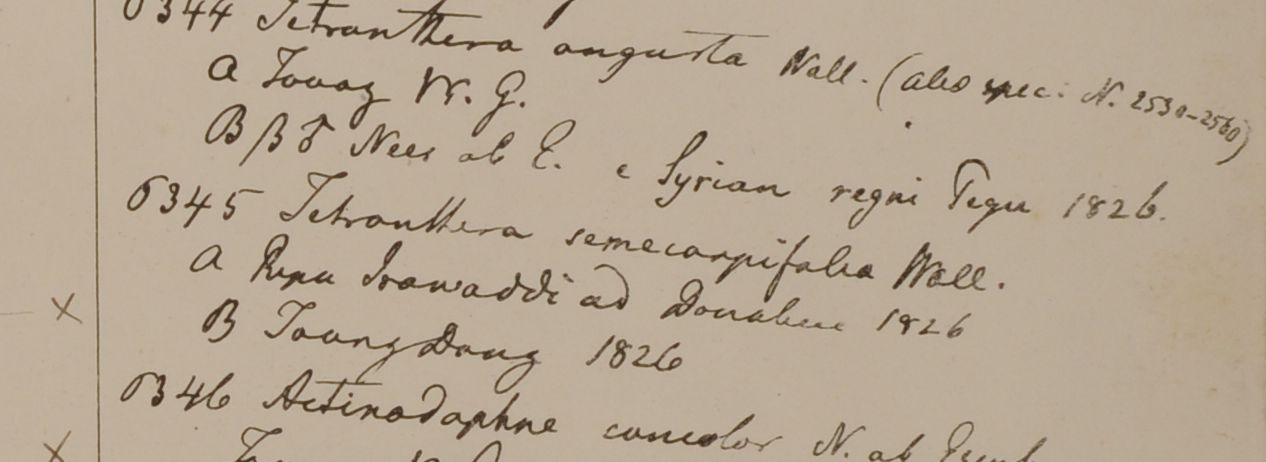 6344 Tetranthera angusta Wall. (also spec. N. 2530-2560)
A Tovoy W. G.
B β δ Nees ab E. e Syrian regni Pegu 1826.
6345 Tetranthera semecarpifolia Wall.
A Ripa Irawaddi ad Donabue 1826
B Taong Dong 1826
6346 Actinodaphne concolor N. ab Esenb